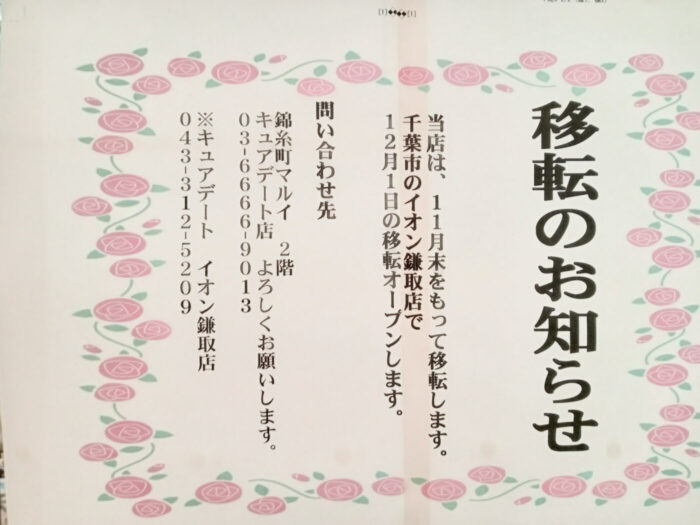 移転のお知らせ
当店は、11月末をもって移転します。
千葉市のイオン鎌取店で
12月1日の移転オープンします。
問い合わせ先
錦糸町マルイ 2階
キュアデート店 よろしくお願いします。
03-6666-9013
※キュアデート イオン鎌取店
043-312-5209